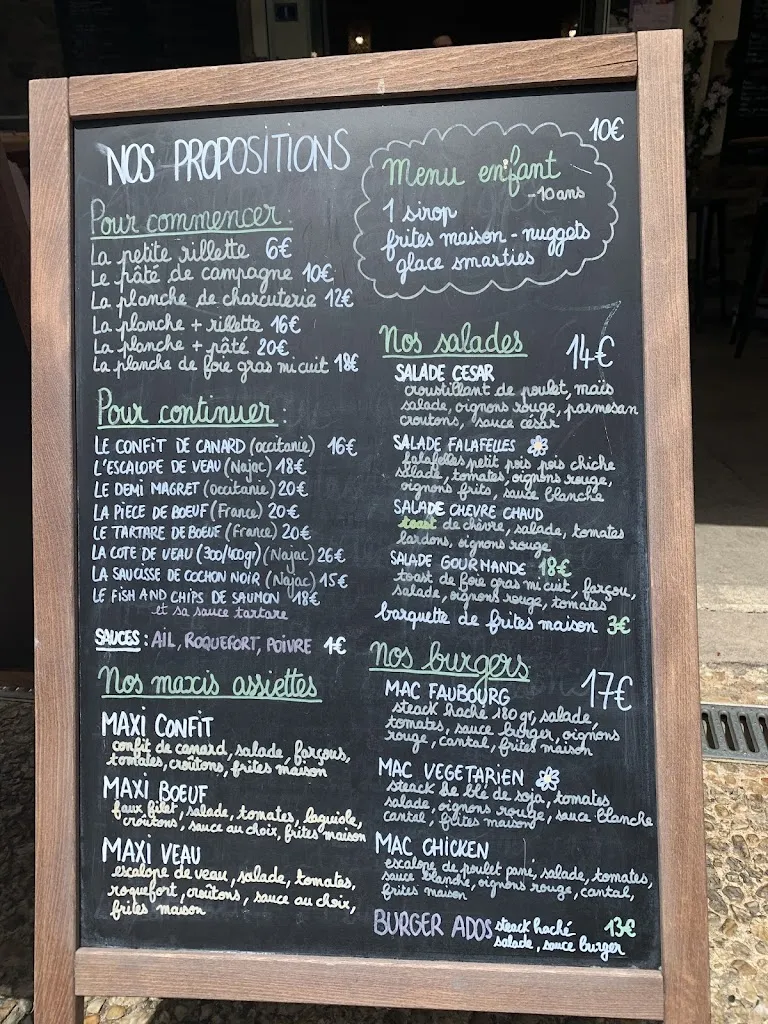 NOS PROPOSITIONS
Pour commencer :
La petite rillette 6€
Le pâté de campagne 10€
La planche de charcuterie 12€
La planche + rillette 16€
La planche + pâté 20€
La planche de foie gras mi cuit 18€
Pour continuer :
LE CONFIT DE CANARD (occitanie) 16€
L'ESCALOPE DE VEAU (Najac) 18€
LE DEMI MAGRET (occitanie) 20€
LA PIÈCE DE BOEUF (France) 20€
LE TARTARE DE BOEUF (France) 20€
LA COTE DE VEAU (300/400gr) (Najac) 26€
LA SAUCISSE DE COCHON NOIR (Najac) 15€
LE FISH AND CHIPS DE SAUMON 18€
et sa sauce tartare
SAUCES : AIL, ROQUEFORT, POIVRE 1€
Nos maxis assiettes
MAXI CONFIT
confit de canard, salade, farçous,
tomates, croûtons, frites maison
MAXI BOEUF
faux filet, salade, tomates, laguiole,
croûtons, sauce au choix, frites maison
MAXI VEAU
escalope de veau, salade, tomates,
roquefort, croûtons, sauce au choix,
frites maison
10€
Menu enfant
-10 ans
1 sirop
frites maison - nuggets
glace smarties
Nos salades 14€
SALADE CESAR
croustillant de poulet, maïs
salade, oignons rouge, parmesan
croutons, sauce césar
SALADE FALAFELLES
falafelles petit pois pois chiche
salade, tomates, oignons rouge,
oignons frits, sauce blanche
SALADE CHEVRE CHAUD
toast de chèvre, salade, tomates
lardons, oignons rouge
SALADE GOURMANDE 18€
toast de foie gras mi cuit, farçou,
salade, oignons rouge, tomates
barquette de frites maison 3€
Nos burgers 17€
MAC FAUBOURG
steack haché 180 gr, salade,
tomates, sauce burger, oignons
rouge, cantal, frites maison
MAC VEGETARIEN
steack de blé de soja, tomates
salade, oignons rouge, sauce blanche
cantal, frites maison
MAC CHICKEN
escalope de poulet pané, salade, tomates,
sauce blanche, oignons rouge, cantal,
frites maison
BURGER ADOS steack haché 13€
salade, sauce burger